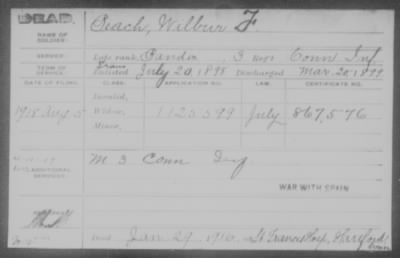 DEAD
Peach, Wilbur F.
NAME OF
SOLDIER:
SERVICE:
Late rank, 3 Regt Conn Inf
TERM OF
SERVICE:
Enlisted July 20, 1898 Discharged Mar. 20, 1899
DATE OF FILING. CLASS. APPLICATION NO. LAW. CERTIFICATE NO.
Invalid,
1918 Aug 5 Widow, 1125599 July 867,576
Minor,
ADDITIONAL
SERVICES:
M 3 Conn Inf
WAR WITH SPAIN
Died Jan 29, 1916, St Francis Hosp, Hartford
Conn